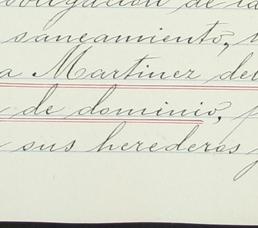 de la
saneamiento,
a Martinez del
de dominio,
sus herederos